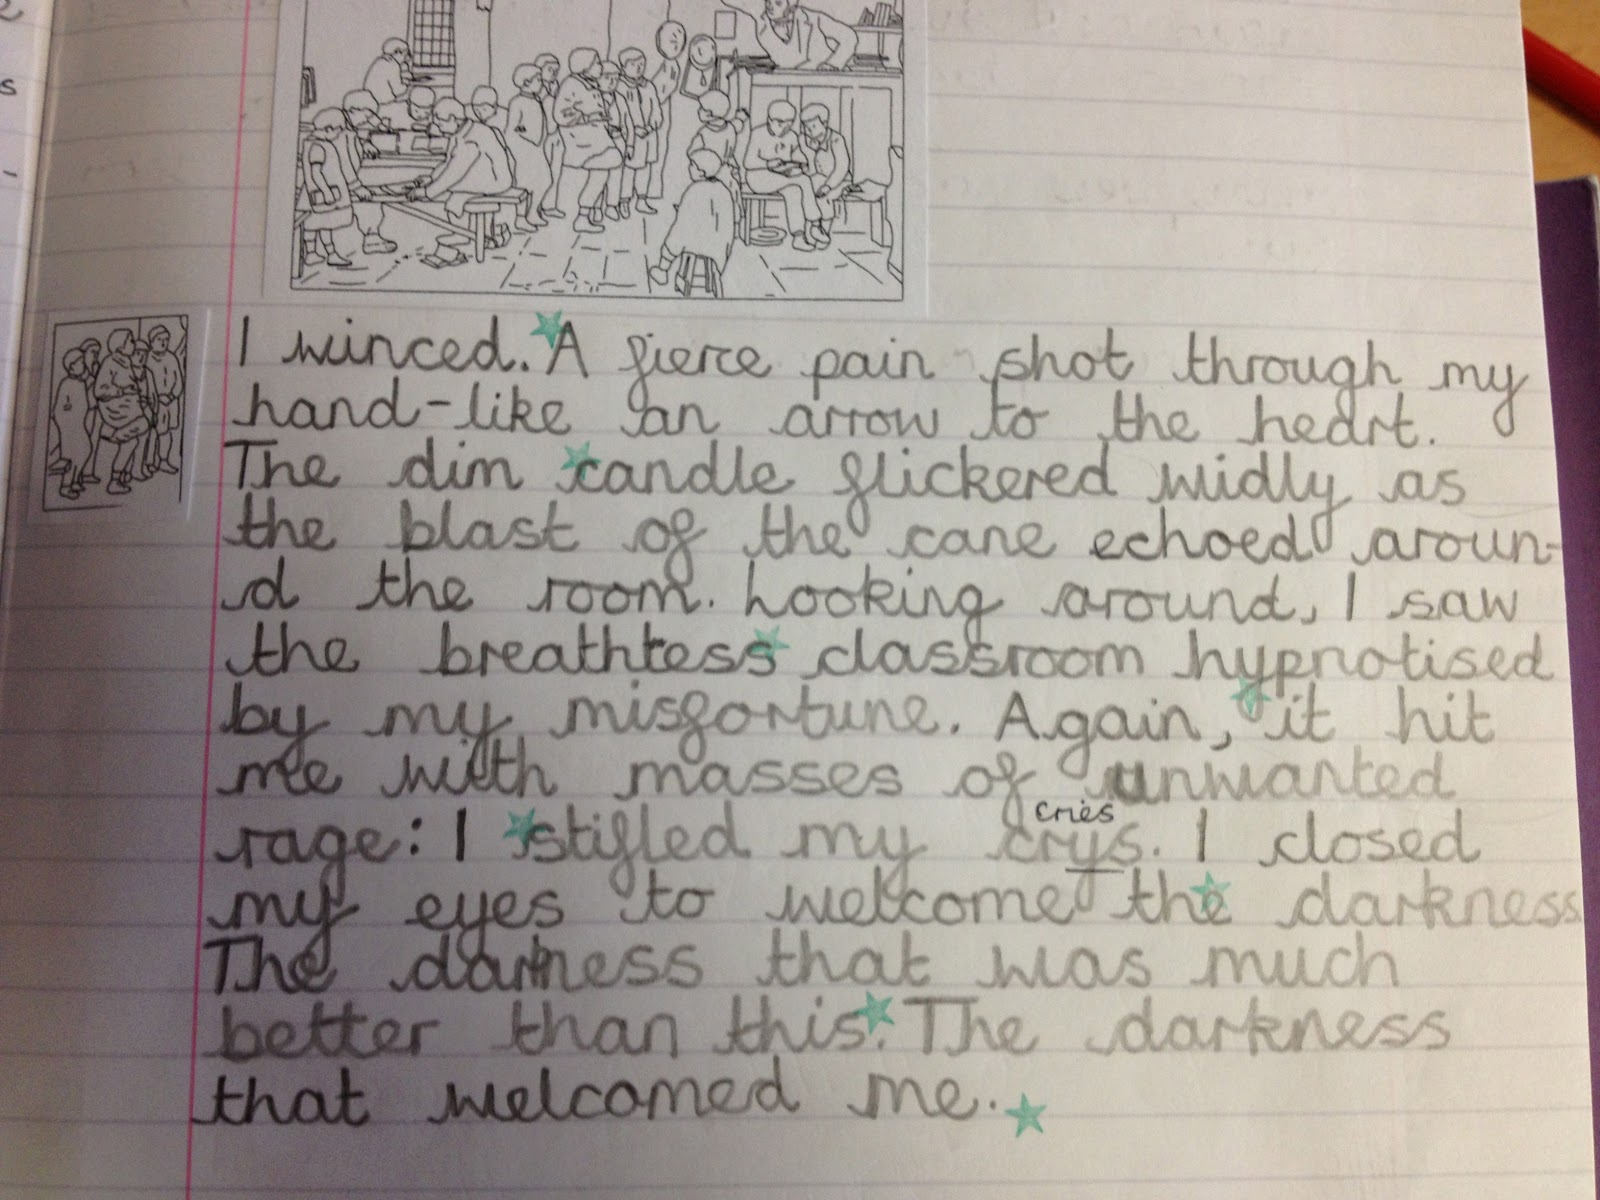 I winced. A fierce pain shot through my
hand-like an arrow to the heart.
The dim candle flickered widly as
the blast of the cane echoed aroun-
d the room. Looking around, I saw
the breathless classroom hypnotised
by my misfortune. Again, it hit
me with masses of unwanted
rage: I stifled my crys. I closed
cries
my eyes to welcome the darkness
The darkness that was much
better than this. The darkness
that welcomed me.